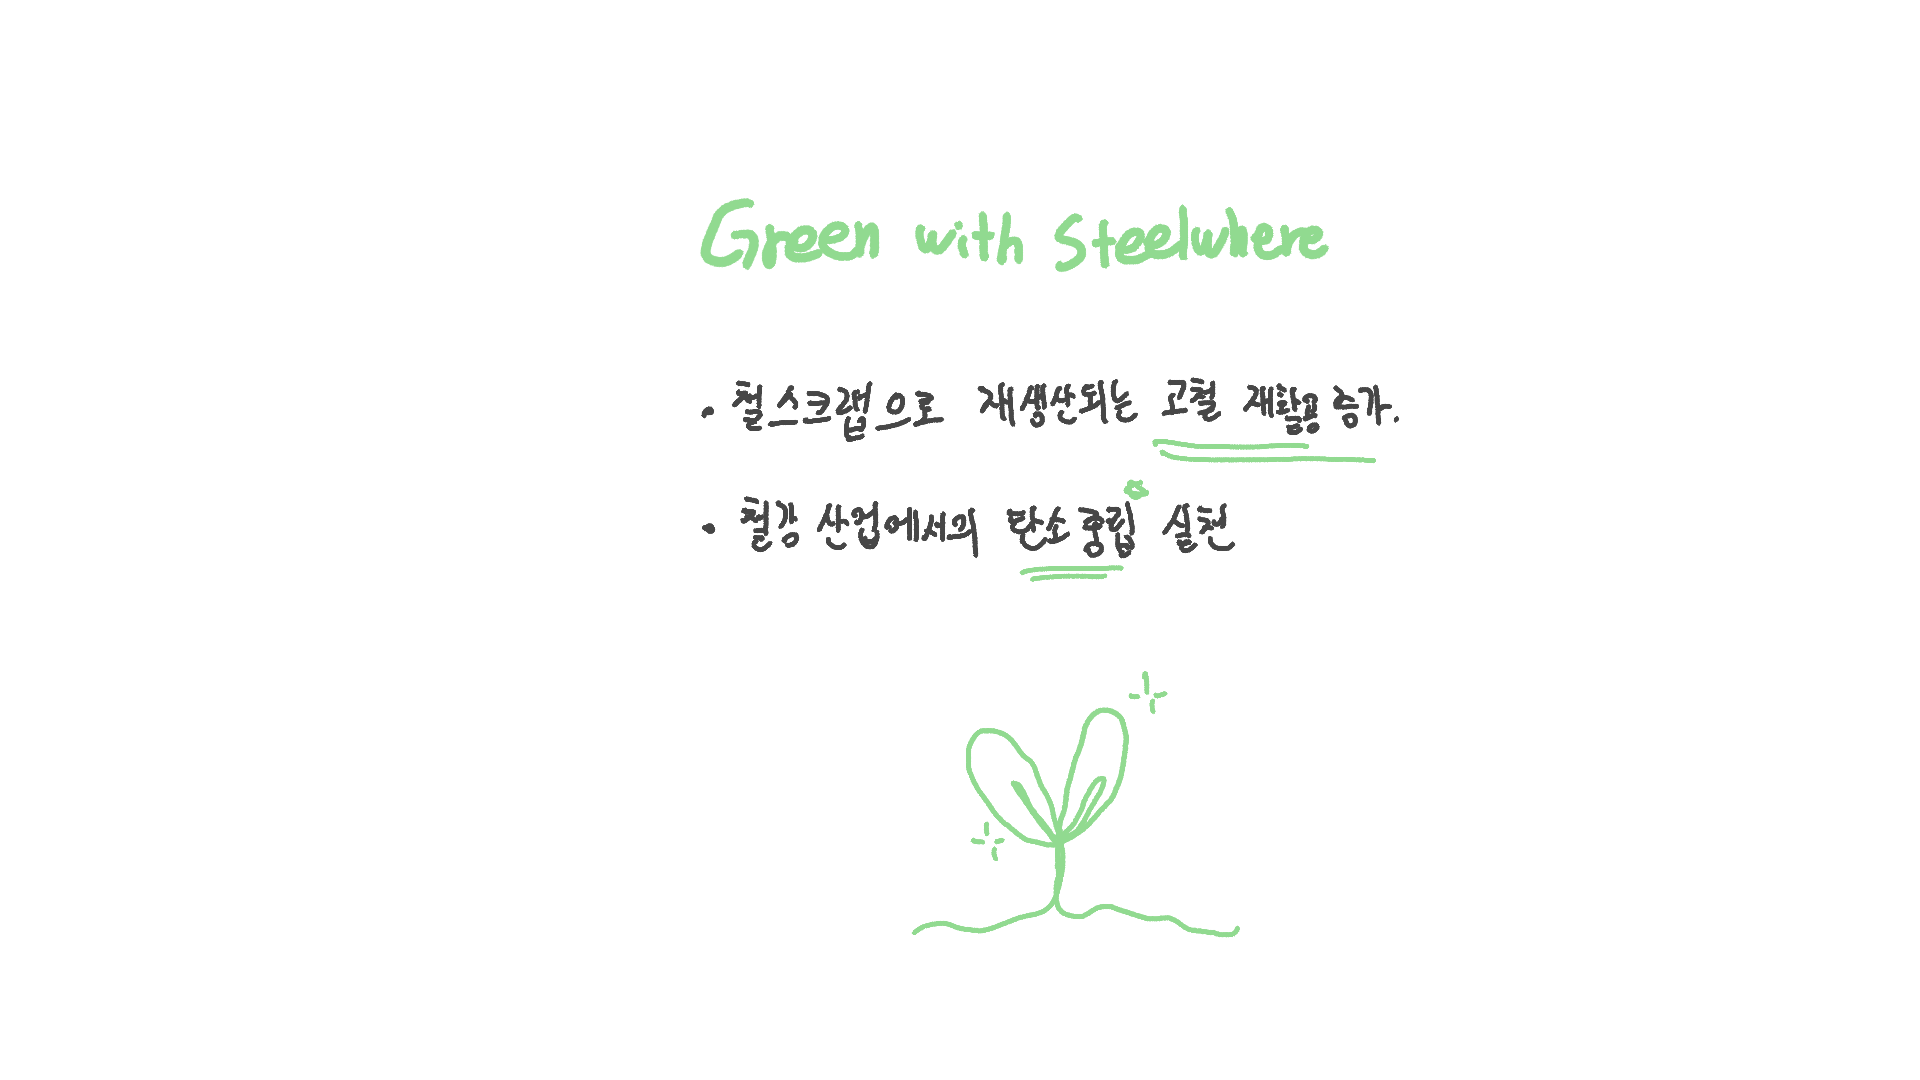 Green with Steelwhere
· 철스크랩으로 재생산되는 고철 재활용 증가.
· 철강 산업에서의 탄소중립 실천